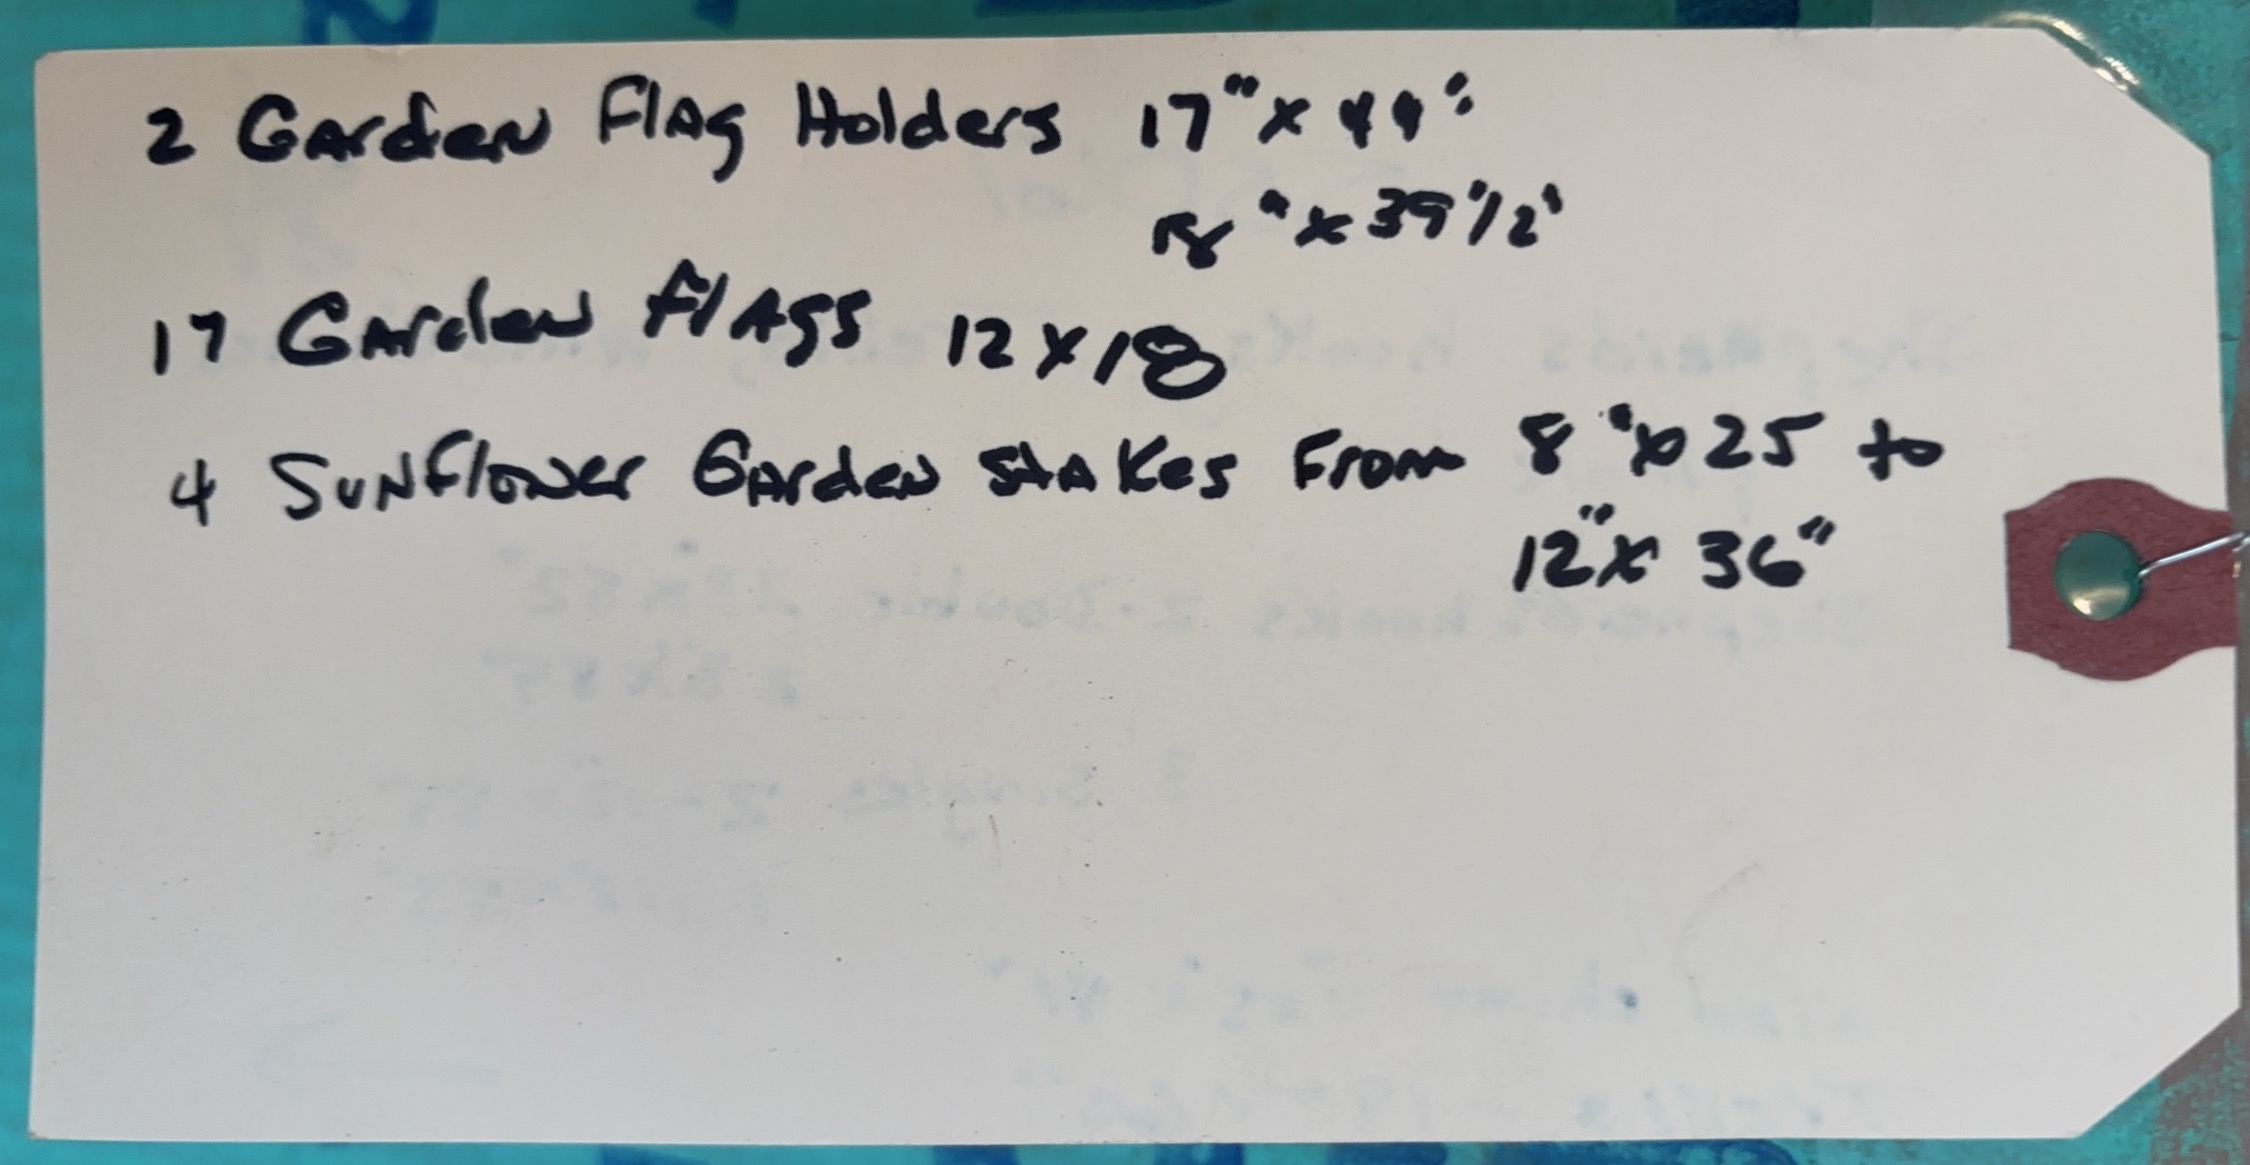 2 Garden Flag Holders 17" x 44"
18" x 39 1/2"
17 Garden Flags 12 x 18
4 Sunflower Garden Stakes From 8" x 25 to
12" x 36"